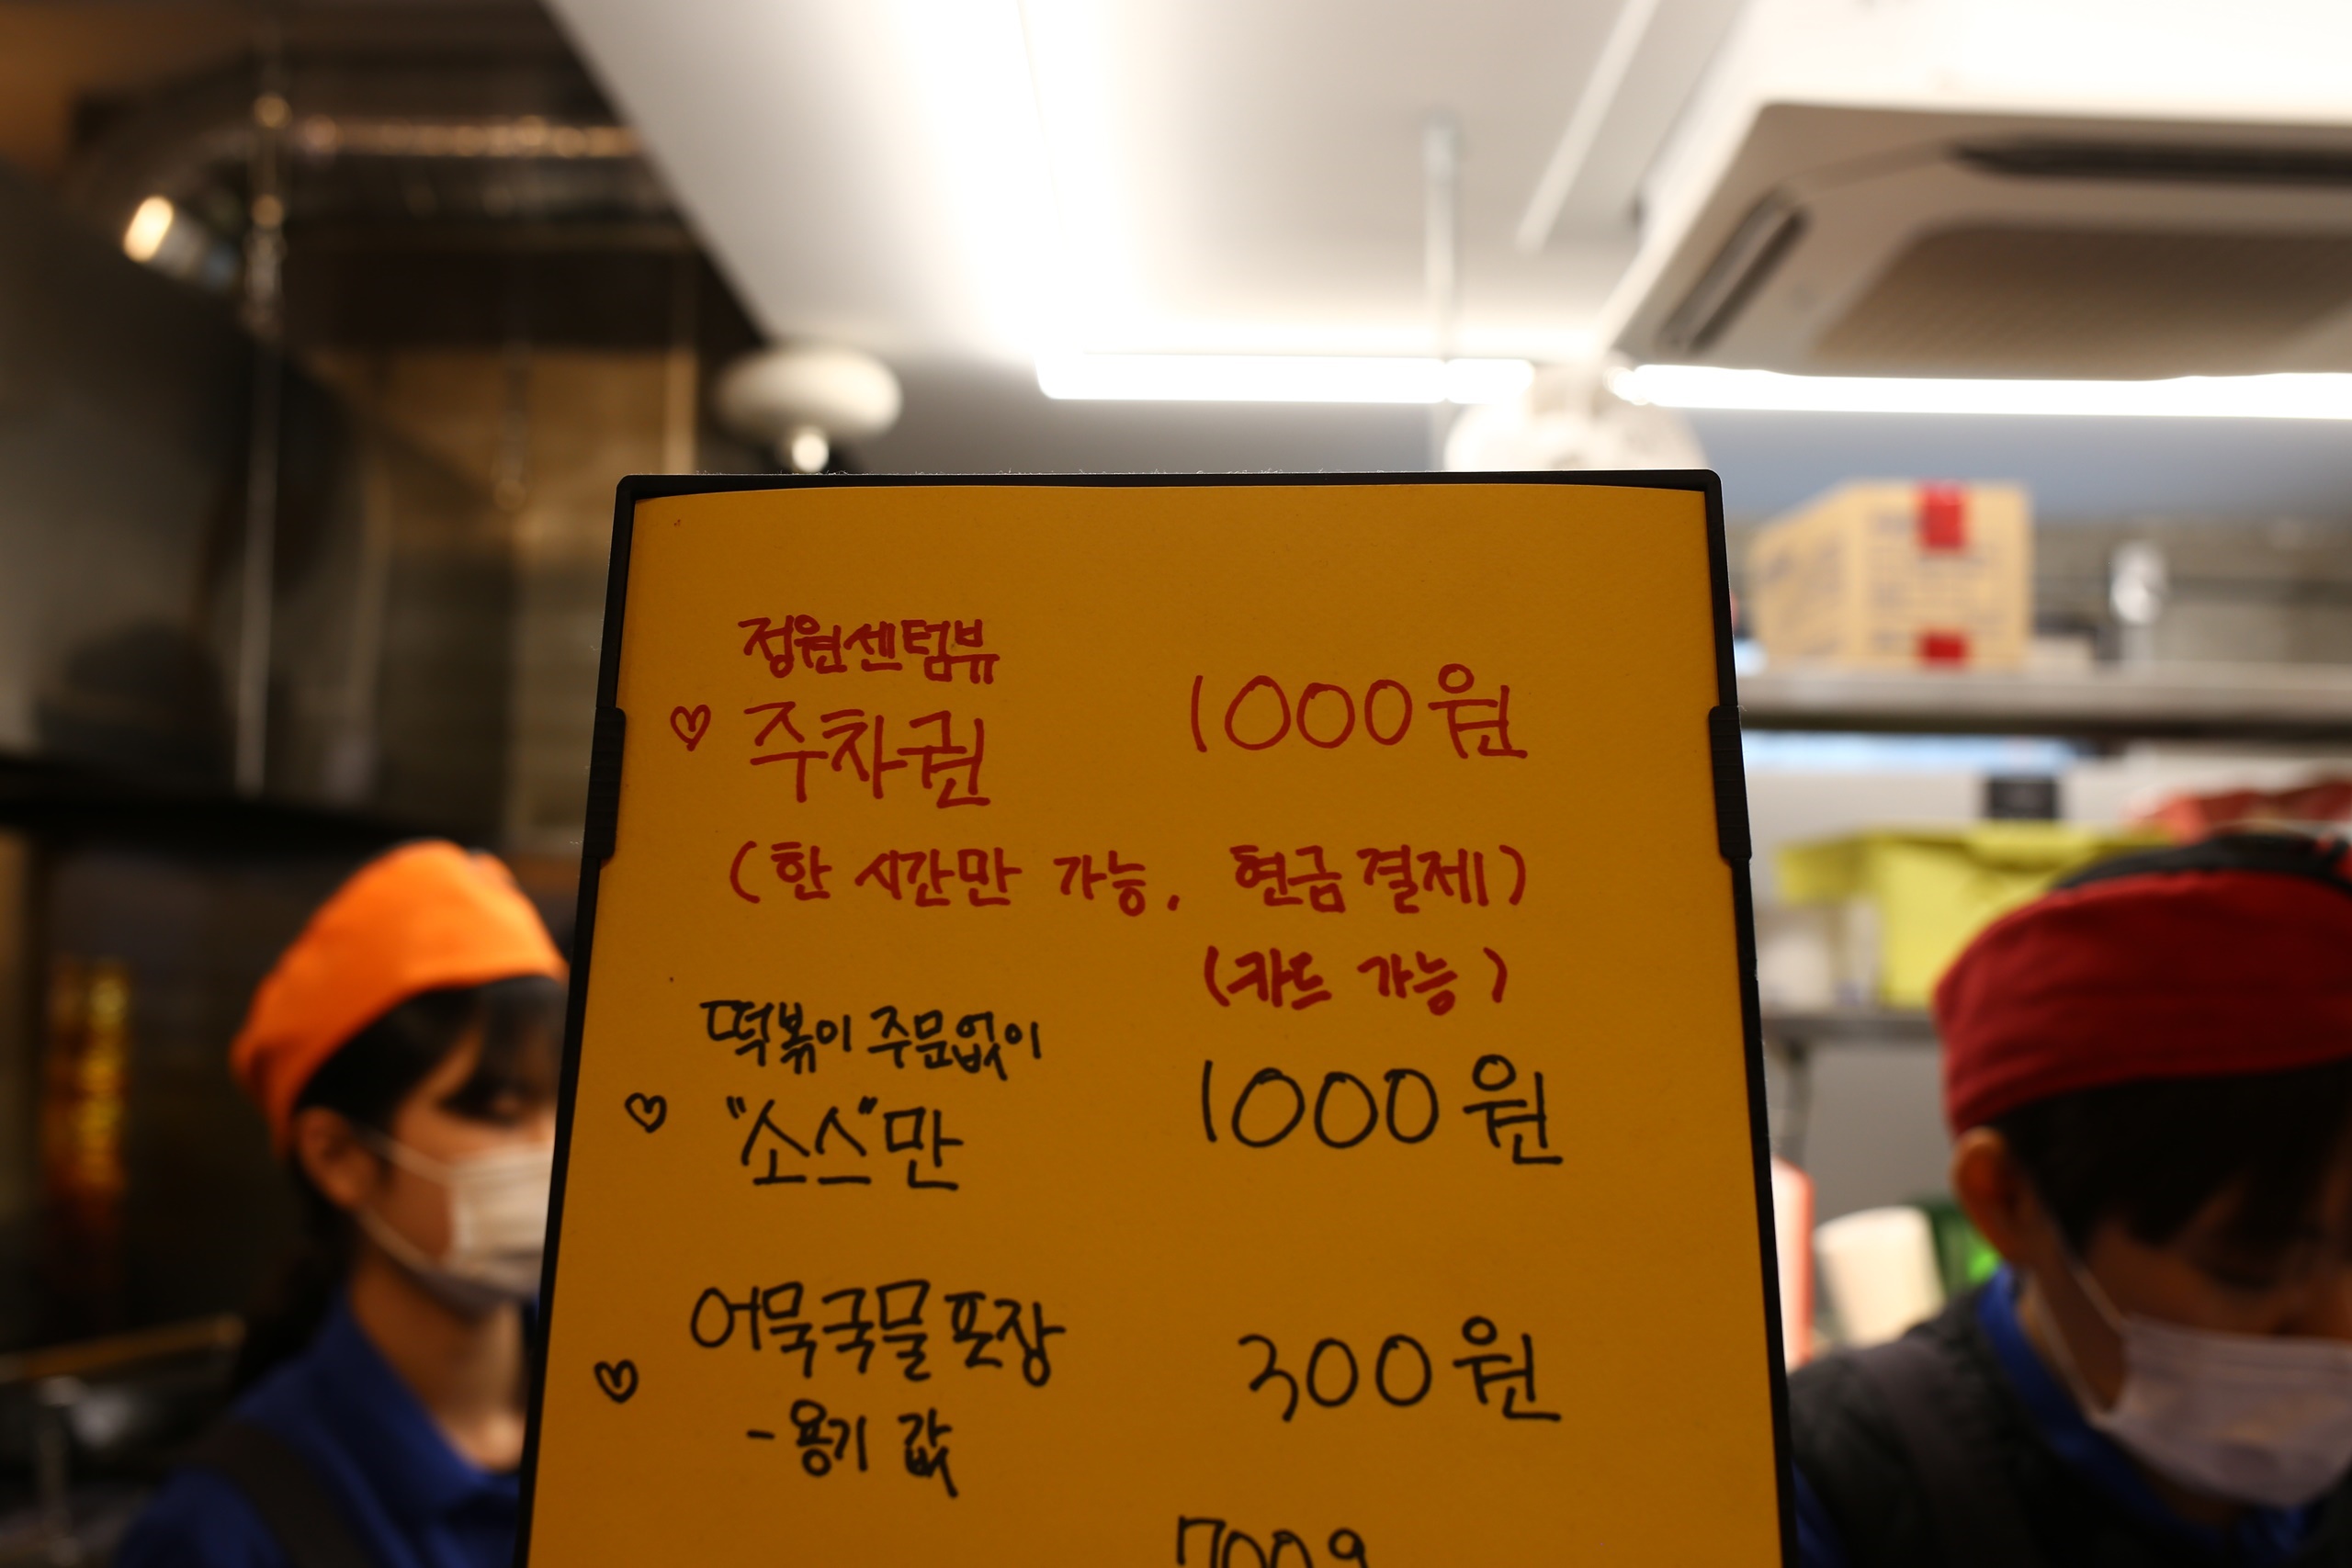 정원센텀뷰
♡ 주차권 1000원
(한 시간만 가능. 현금결제)
(카드 가능)
떡볶이 주문없이
♡ "소스"만 1000원
어묵국물포장
♡ 300원
-용기 값